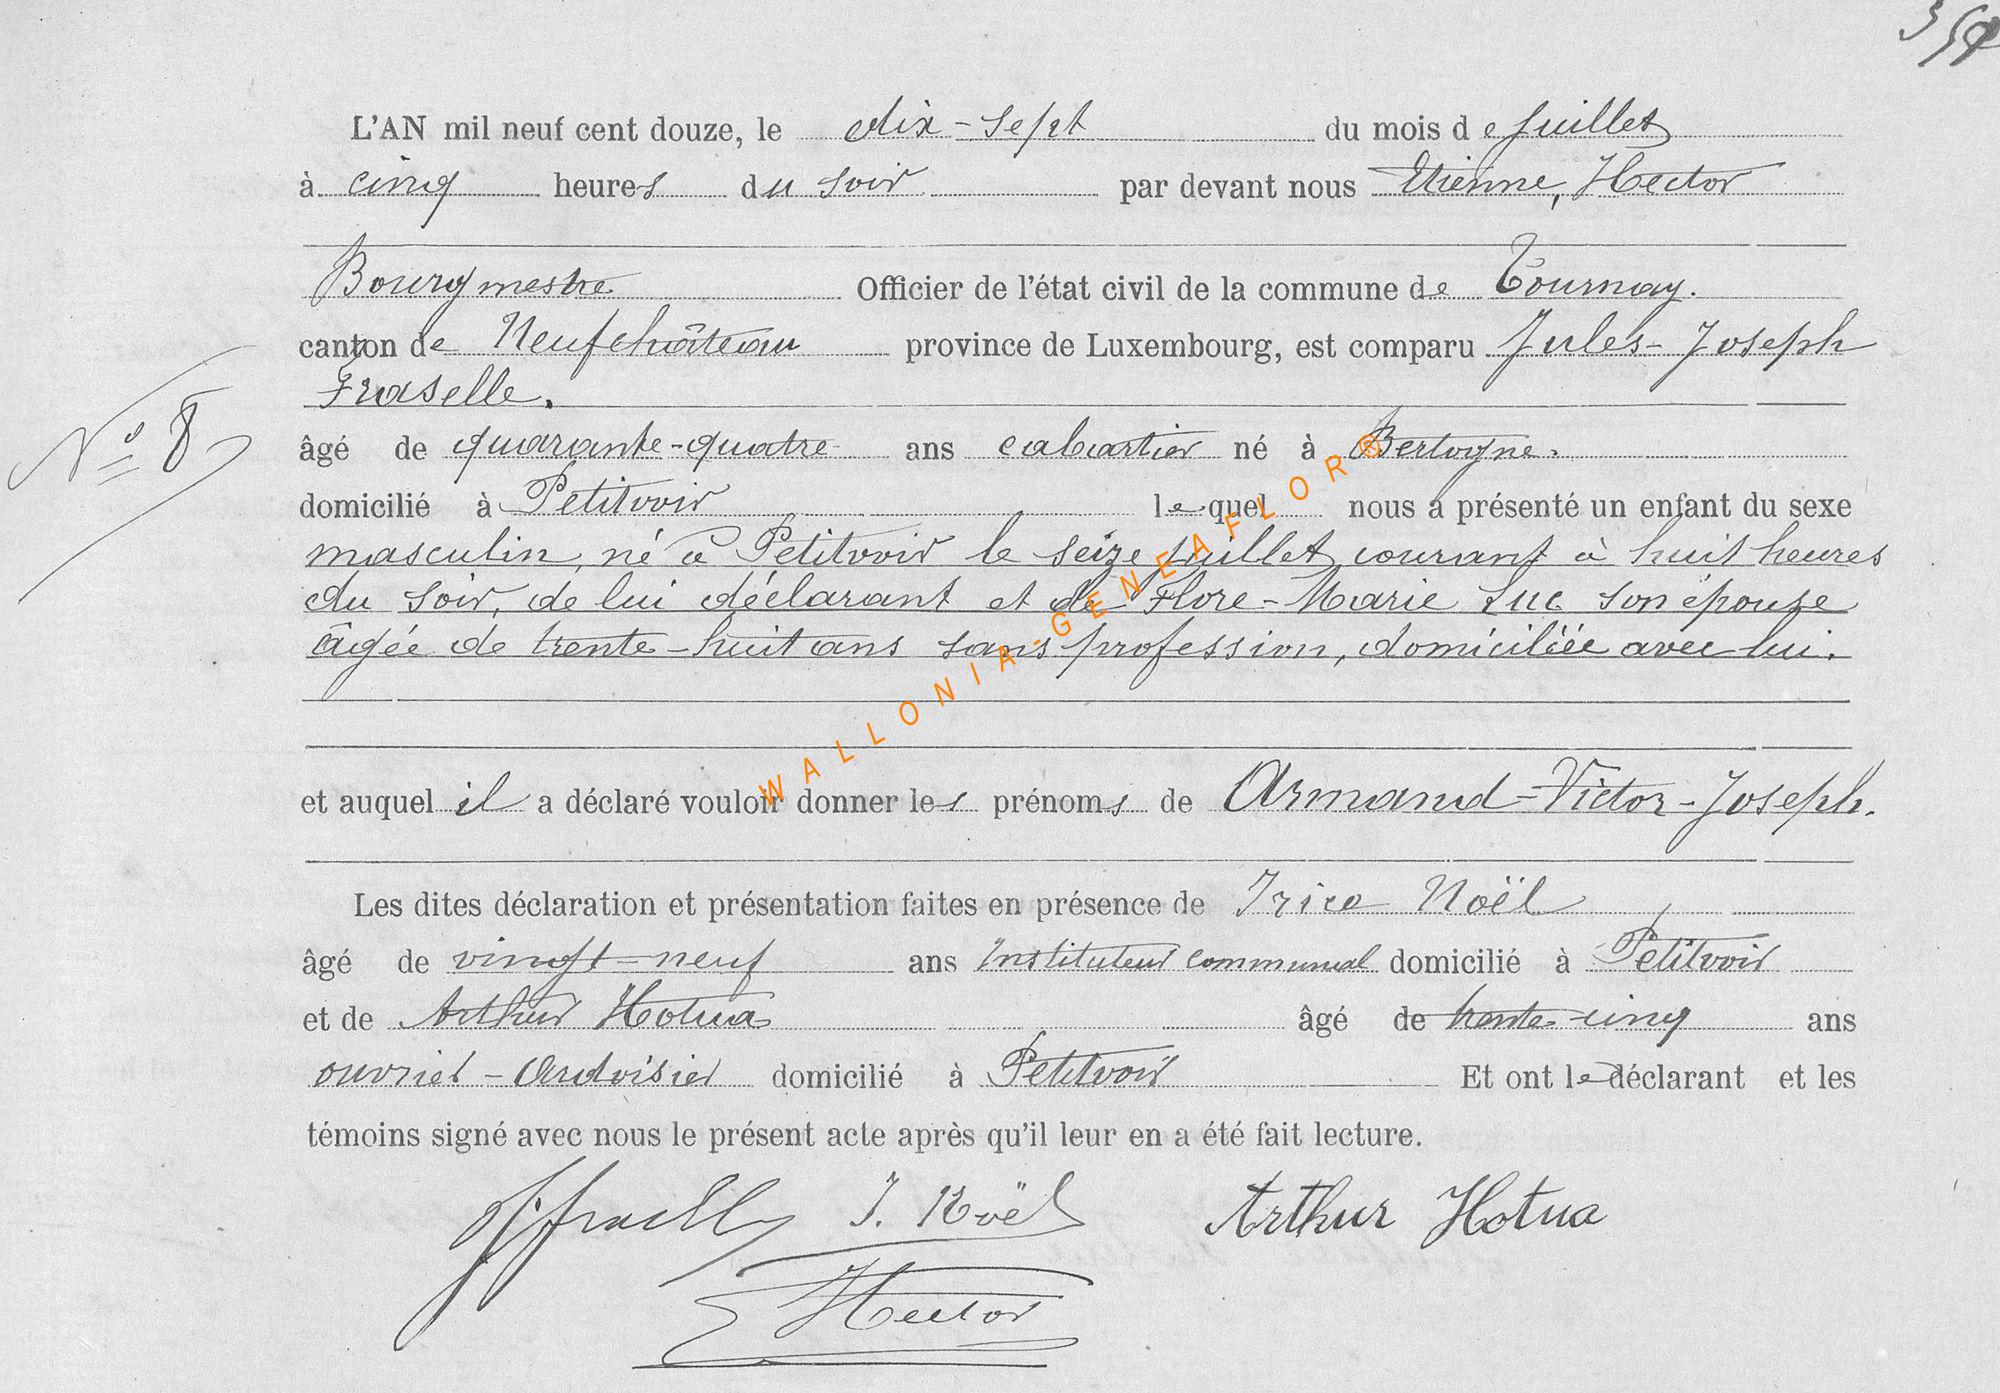 L'AN mil neuf cent douze, le dix-sept du mois de Juillet
à cinq heures du soir par devant nous Etienne, Hector
Bourgmestre Officier de l'état civil de la commune de Tournay.
canton de Neufchâteau province de Luxembourg, est comparu Jules-Joseph
Fraselle.
N° 8
âgé de quarante-quatre ans cabartier né à Bertogne.
domicilié à Petitvoir lequel nous a présenté un enfant du sexe
masculin, né à Petitvoir le seize juillet courant à huit heures
du soir, de lui déclarant et de Flore-Marie Luc son épouse
âgée de trente-huit ans sans profession, domiciliée avec lui.
et auquel il a déclaré vouloir donner les prénoms de Armand-Victor-Joseph.
Les dites déclaration et présentation faites en présence de Noël
âgé de vingt-neuf ans Instituteur communal domicilié à Petitvoir
et de Arthur Hotua âgé de trente-cinq ans
ouvrier-Ardoisier domicilié à Petitvoir Et ont le déclarant et les
témoins signé avec nous le présent acte après qu'il leur en a été fait lecture.
J. Noël Arthur Hotua
Hector
WALLONIA-GENEAFLOR®